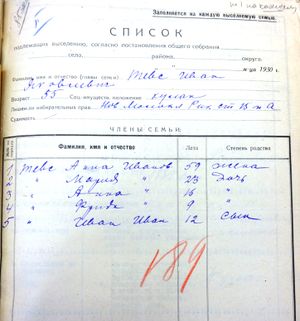 Заполняется на каждую выселяемую семью.
СПИСОК
подлежащих выселению, согласно постановления общего собрания
села, района, округа.
1930 г.
Фамилия, имя и отчество (главы семьи) Тевс Иван
Яковлевич
Возраст 55 Соц. имущество положение кулак
Лишен избирательных прав
Судимость
ЧЛЕНЫ СЕМЬИ:
Фамилия, имя и отчество Лета Степень родства
1 Тевс Анна Иванов 59 жена
2 " Мария " 23 дочь
3 " Анна " 16 "
4 " " 9 "
5 " Иван Иван 12 сын
189